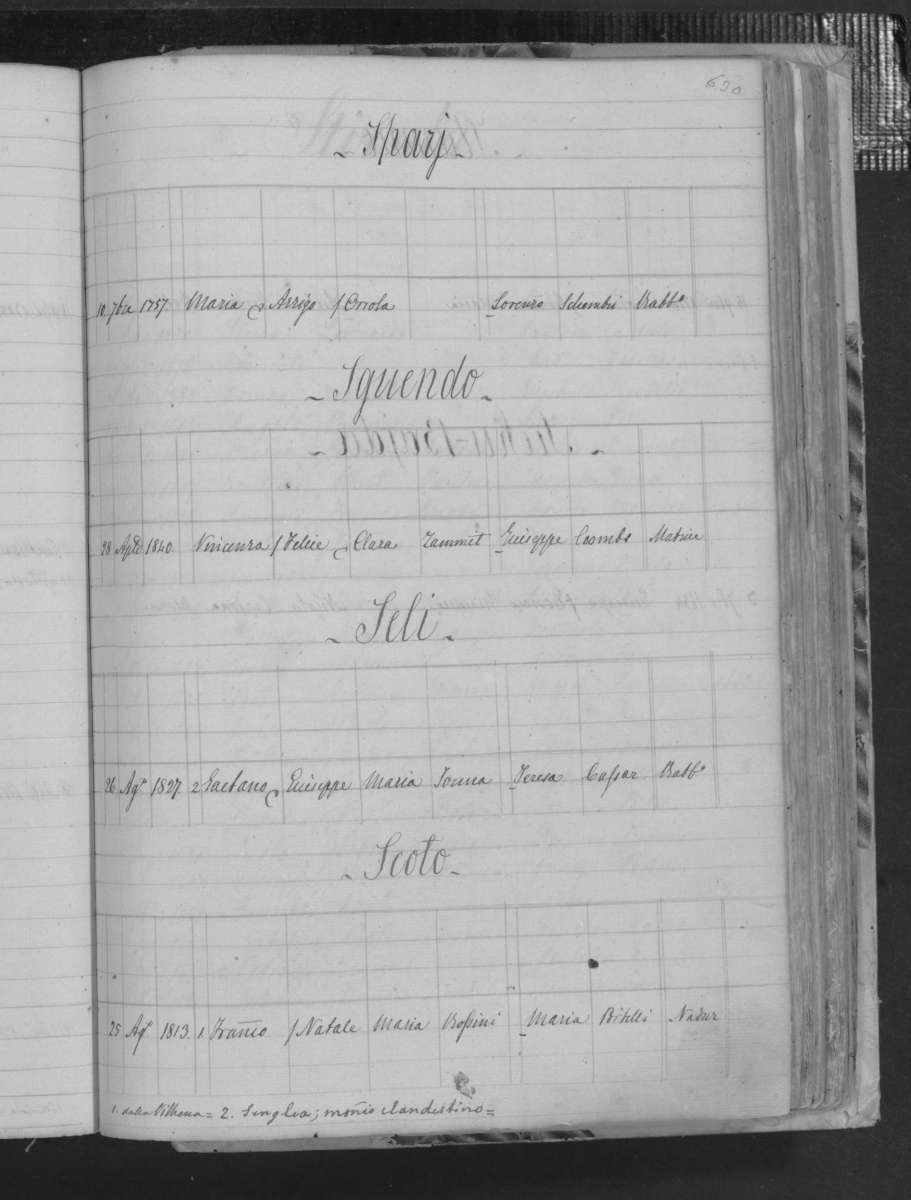 630
- Sparj -
10. 7bre 1757 Maria Arrigo / Orsola Lorenzo Schembri Rabbo
- Sguendo -
28 Aple 1840. Vincenza / Felice Clara Zammit Giuseppe Coombs Matrice
- Seli -
26 Ago 1827 2 Gaetano Giuseppe Maria Teresa Cassar Rabbo
- Scoto -
25 Ago 1813. 1 Franco / Natale Maria Rossini Maria Bitelli Nadur
1. della Vilhena = 2. Senglea; monio clandestino =